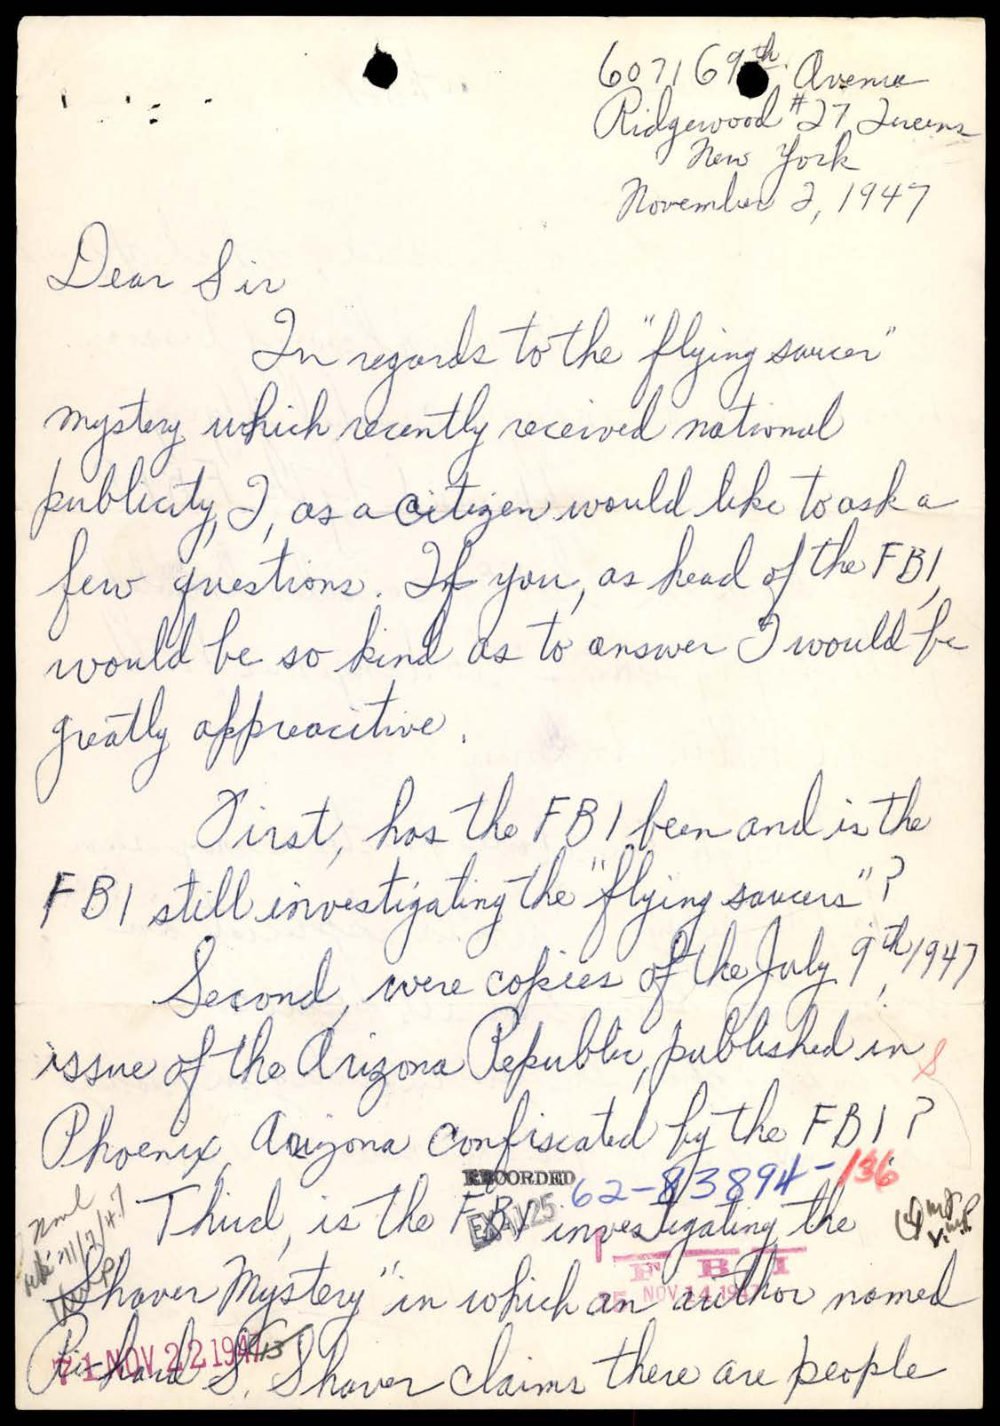 6071 69th Avenue
Ridgewood #27, Queens
New York
November 2, 1947
Dear Sir
In regards to the "flying saucer"
mystery which recently received national
publicity, I, as a citizen would like to ask a
few questions. If you, as head of the FBI,
would be so kind as to answer I would be
greatly appreacitive.
First, has the FBI been and is the
FBI still investigating the "flying saucers"?
Second, were copies of the July 9th, 1947
issue of the Arizona Republic, published in
Phoenix, Arizona confiscated by the FBI?
RECORDED
62-83894-136
EX-125
Third, is the FBI investigating the
F B I
NOV 14 194
"Shaver Mystery" in which an author named
71 NOV 22 1947
Richard S. Shaver claims there are people